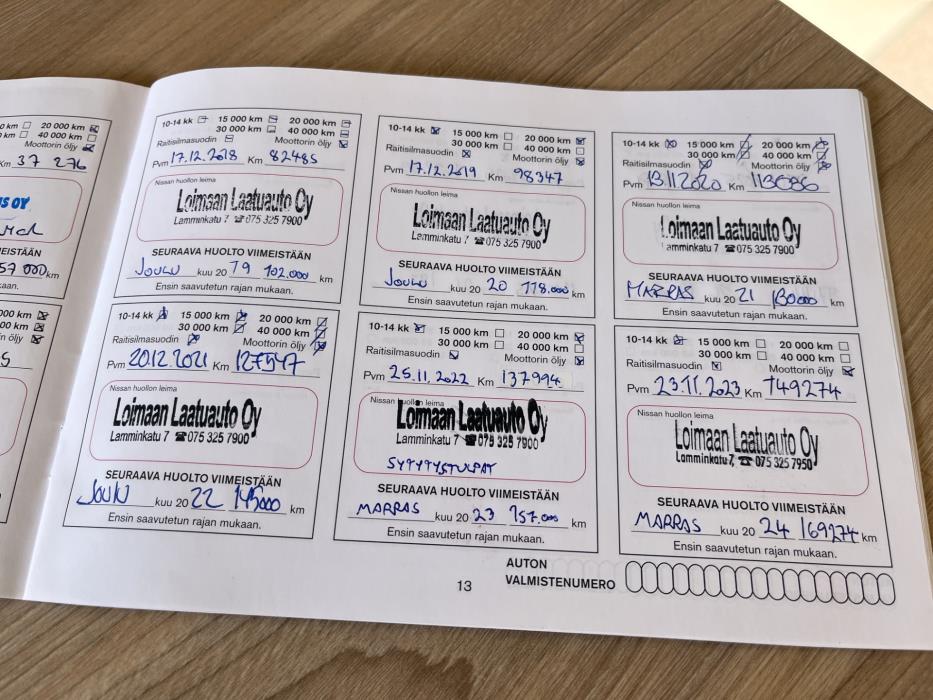 0 km 20 000 km
0 km 40 000 km
Moottorin öljy
Km 37 276
US OY
EISTÄÄN
57 000 km
kaan.
000 km
000 km
n öljy
S
10-14 kk 15 000 km 20 000 km
30 000 km 40 000 km
Raitisilmasuodin Moottorin öljy
Pvm 17.12.2018 Km 82485
Nissan huollon leima
Loimaan Laatuauto Oy
Lamminkatu 7 ☎ 075 325 7900
SEURAAVA HUOLTO VIIMEISTÄÄN
JOULU kuu 20 19 102.000 km
Ensin saavutetun rajan mukaan.
10-14 kk 15 000 km 20 000 km
30 000 km 40 000 km
Raitisilmasuodin Moottorin öljy
Pvm 17.12.2019 Km 98347
Nissan huollon leima
Loimaan Laatuauto Oy
Lamminkatu 7 ☎ 075 325 7900
SEURAAVA HUOLTO VIIMEISTÄÄN
JOULU kuu 20 20 118.000 km
Ensin saavutetun rajan mukaan.
10-14 kk 15 000 km 20 000 km
30 000 km 40 000 km
Raitisilmasuodin Moottorin öljy
Pvm 13.11.2020 Km 113686
Nissan huollon leima
Loimaan Laatuauto Oy
Lamminkatu 7 ☎ 075 325 7900
SEURAAVA HUOLTO VIIMEISTÄÄN
MARRAS kuu 20 21 130000 km
Ensin saavutetun rajan mukaan.
10-14 kk 15 000 km 20 000 km
30 000 km 40 000 km
Raitisilmasuodin Moottorin öljy
Pvm 20.12.2021 Km 127547
Nissan huollon leima
Loimaan Laatuauto Oy
Lamminkatu 7 ☎ 075 325 7900
SEURAAVA HUOLTO VIIMEISTÄÄN
JOULU kuu 20 22 145000 km
Ensin saavutetun rajan mukaan.
10-14 kk 15 000 km 20 000 km
30 000 km 40 000 km
Raitisilmasuodin Moottorin öljy
Pvm 25.11.2022 Km 137994
Nissan huollon leima
Loimaan Laatuauto Oy
Lamminkatu 7 ☎ 075 325 7900
SYTYTYSTULPAT
SEURAAVA HUOLTO VIIMEISTÄÄN
MARRAS kuu 20 23 157.000 km
Ensin saavutetun rajan mukaan.
10-14 kk 15 000 km 20 000 km
30 000 km 40 000 km
Raitisilmasuodin Moottorin öljy
Pvm 23.11.2023 Km 149274
Nissan huollon leima
Loimaan Laatuauto Oy
Lamminkatu 7, ☎ 075 325 7950
SEURAAVA HUOLTO VIIMEISTÄÄN
MARRAS kuu 20 24 169274 km
Ensin saavutetun rajan mukaan.
13
AUTON
VALMISTENUMERO